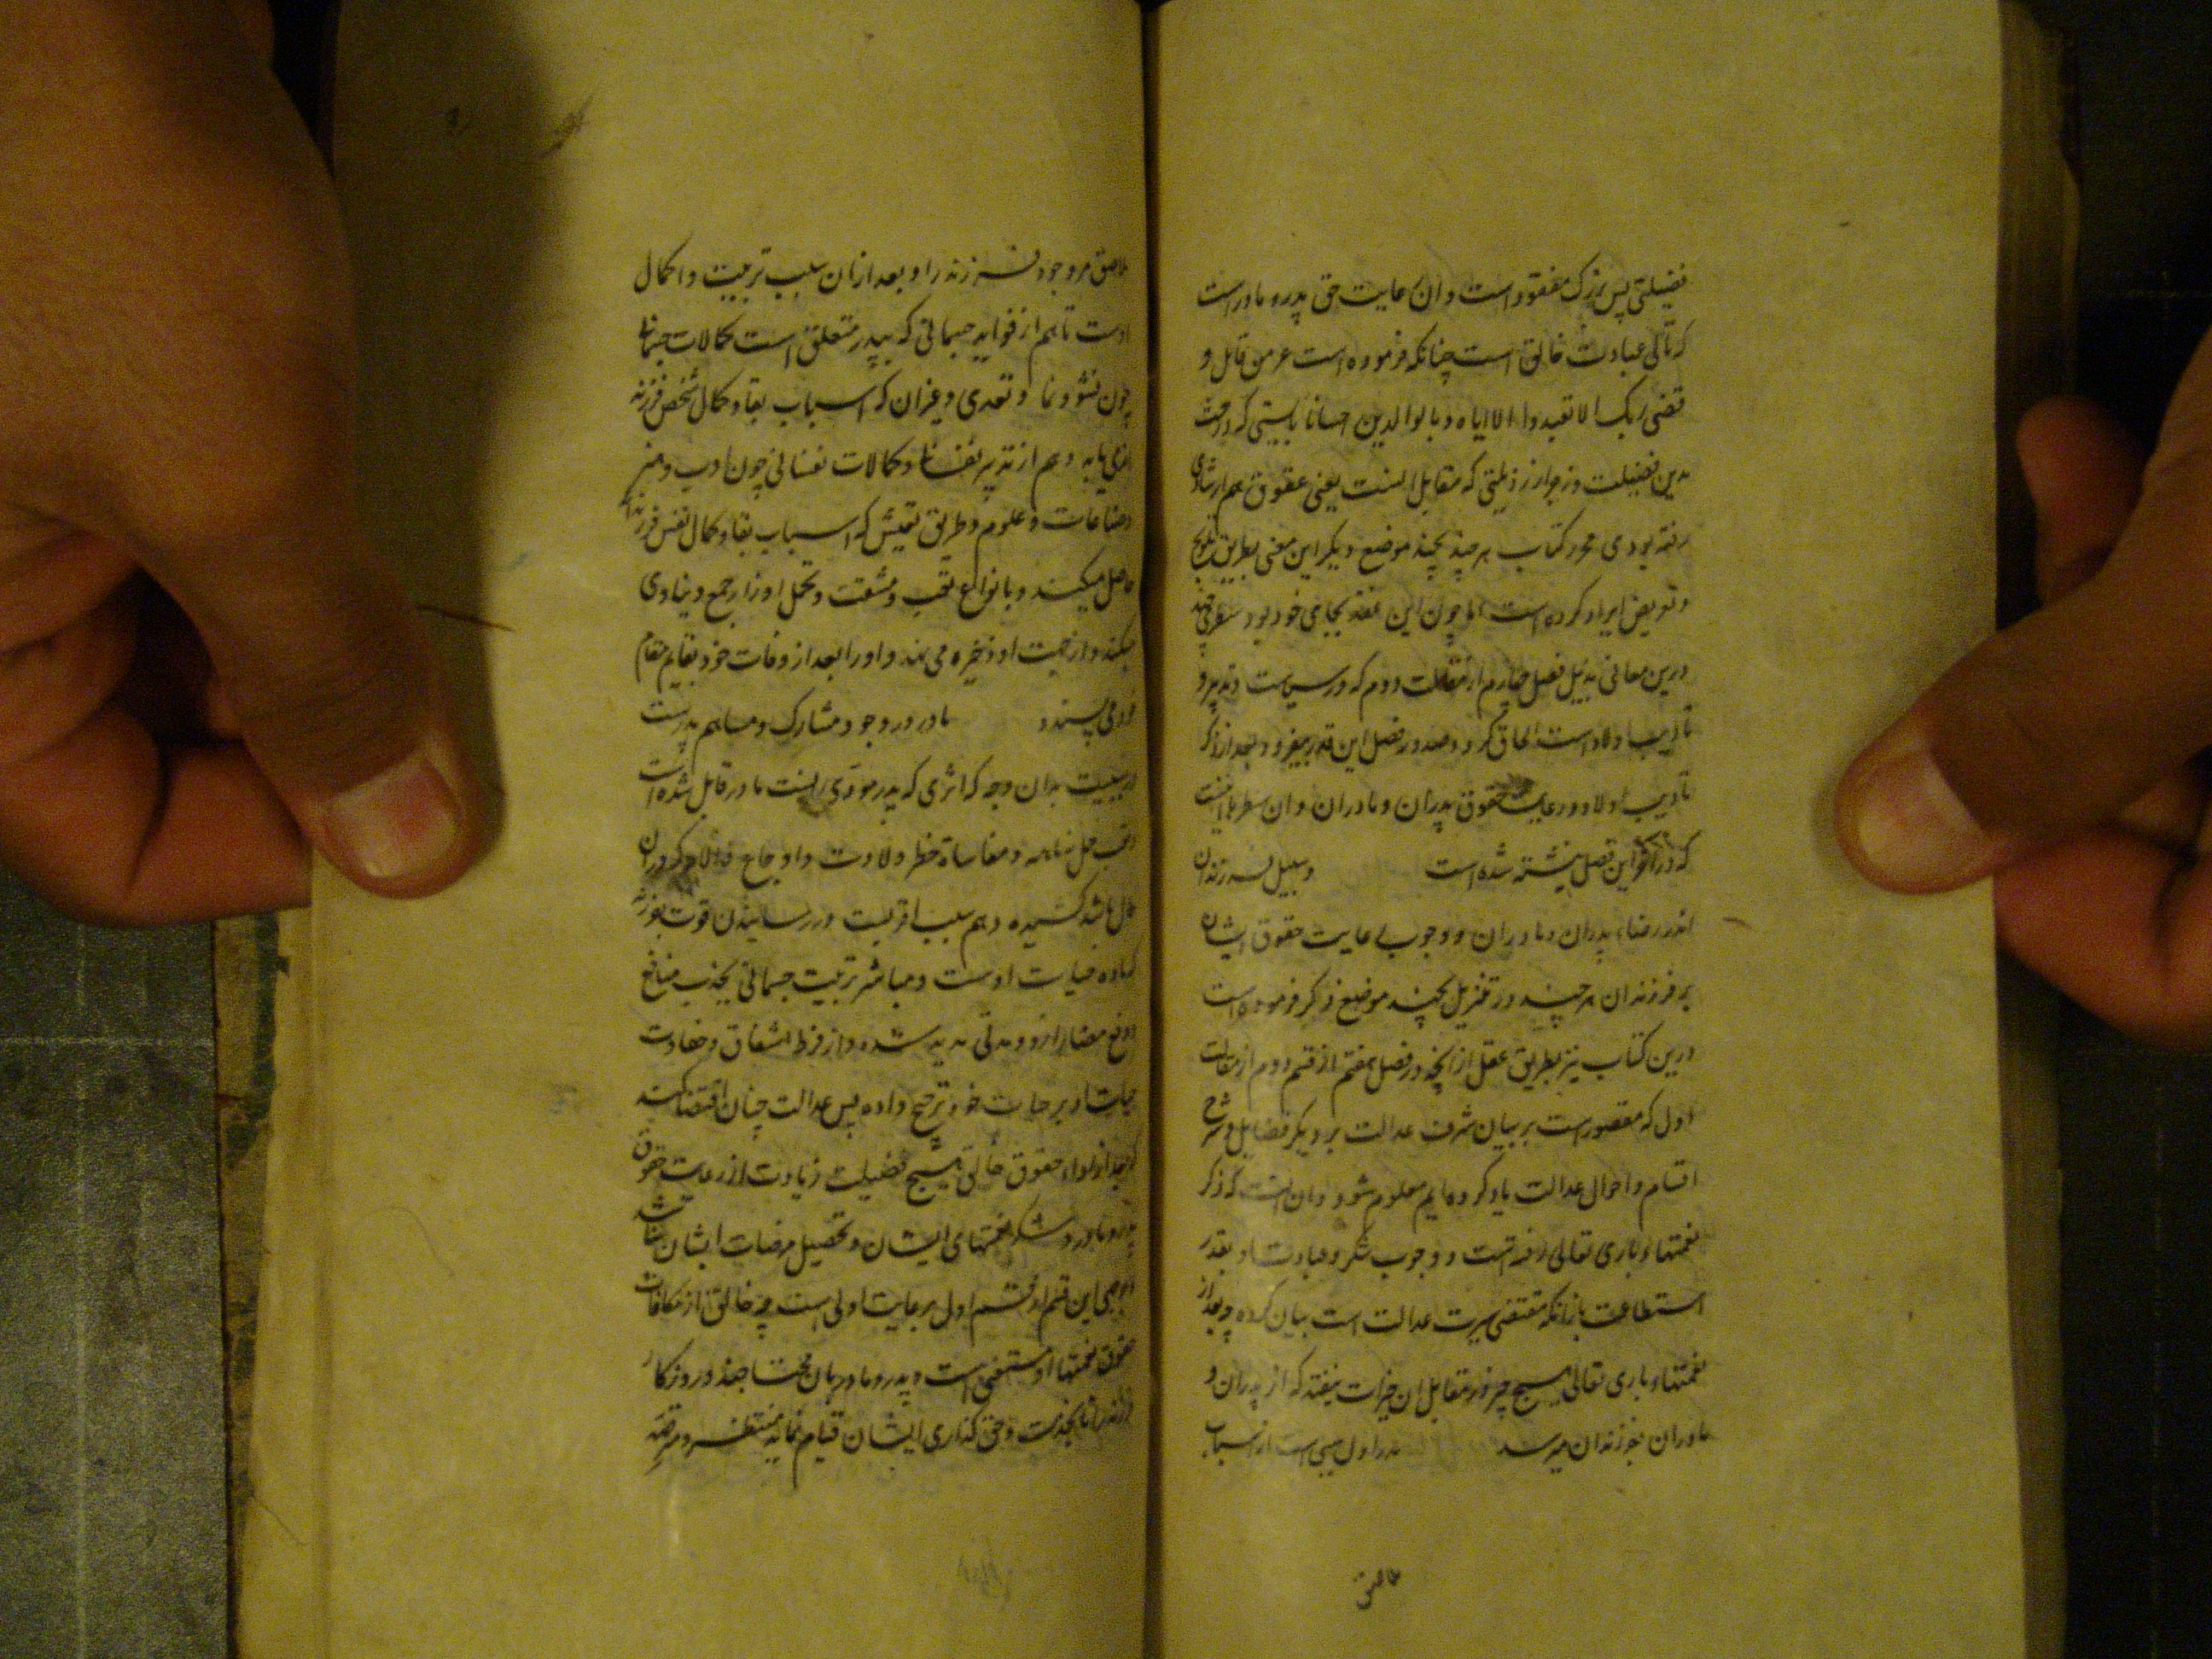 فضیلتی بس بزرگ مفقود است و آن رعایت حق پدر و مادر است
که تالی عبادت خالق است چنانکه فرموده است عز من قائل و
قضی ربک الا تعبدوا الا ایاه و بالوالدین احسانا بایستی که در حث
بدین فضیلت و زجر از رذیلتی که مقابل آنست یعنی عقوق هم اشارتی
رفته بودی محرر کتاب هر چند بچند موضع دیگر این معنی بطریق تلویح
و تعریض ایراد کرده است اما چون این بجای خود بود سطری چند
درین معانی بذیل فصل چهارم از مقالت دوم که در سیاست و تدبیر و
تادیب اولاد است الحاق کرد و صدور فصل این قدر بیفزود و بعد از ذکر
تادیب اولاد و رعایت حقوق پدران و مادران و آن سطرها اینست
که در آخر این فصل نبشته شده است و سبیل فرزندان
اندر رضاء پدران و مادران و وجوب رعایت حقوق ایشان
بر فرزندان هر چند در تنزیل بچند موضع ذکر فرموده است
درین کتاب نیز بطریق عقل از آنچه در فصل هفتم از قسم دوم از مقالت
اول که مقصور است بر بیان شرف عدالت بر دیگر فضایل و شرح
اقسام و احوال عدالت یاد کرده‌ایم معلوم شود و آن آنست که ذکر
نعمتهاء باری تعالی رفته است و وجوب شکر و عبادت او بقدر
استطاعت بازانکه مقتضی سیرت عدالت است بیان کرده و بعد از
نعمتهاء باری تعالی هیچ چیز در مقابل آن خیرات نیفتد که از پدران و
مادران بفرزندان میرسد پدر اول سببی است از اسباب
ملاصق مر وجود فرزند را و بعد از آن سبب تربیت و اکمال
اوست تا هم از فواید جسمانی که بپدر متعلق است کمالات جسمانی
چون نشو و نما و تغذی و غیر آن که اسباب بقا و کمال شخص فرزند
اند می یابد و هم از تدبیر نفسانی او کمالات نفسانی چون ادب و هنر
و صناعات و علوم و طریق تعیش که اسباب بقا و کمال نفس فرزند اند
حاصل میکند و بانواع تعب و مشقت و تحمل اوزار جمع دنیاوی
میکند و از جهت او ذخیره می نهد و او را بعد از وفات خود بقایم مقام
خود می پسندد مادر در وجود مشارک و مساهم پدر است
در سببیت بدان وجه که اثری که پدر مودی آنست مادر قابل شده است
و تعب حمل نه ماهه و مقاساة خطر ولادت و اوجاع و آلام که در آن
حال باشد کشیده و هم سبب اقربست در رسانیدن قوت بفرزند
که ماده حیات اوست و مباشر تربیت جسمانی بجذب منافع
و دفع مضار ازو مدتی مدید شده و از فرط اشفاق و حفاوت
حیات او بر حیات خود ترجیح داده پس عدالت چنان اقتضا کند
که بعد از اداء حقوق خالق هیچ فضیلت زیادت از رعایت حقوق
پدر و مادر و شکر نعمتهای ایشان و تحصیل مرضات ایشان نباشد
و بوجهی این قسم از قسم اول برعایت اولی است چه خالق از مکافات
حقوق نعمتها او مستغنی است و پدر و مادر بدان محتاجند و روزگار
فرزند را تا بخدمت و حق گذاری ایشان قیام نماید منتظر و مترصد